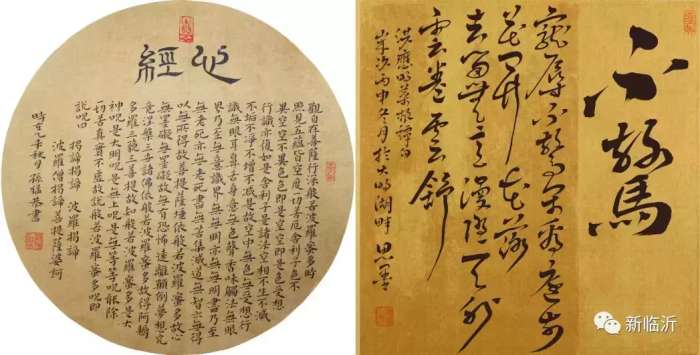 心經
觀自在菩薩行深般若波羅蜜多時
照見五蘊皆空度一切苦厄舍利子色不
異空空不異色色即是空空即是色受想
行識亦復如是舍利子是諸法空相不生不滅
不垢不淨不增不減是故空中無色無受想行
識無眼耳鼻舌身意無色聲香味觸法無眼
界乃至無意識界無無明亦無無明盡乃至
無老死亦無老死盡無苦集滅道無智亦無得
以無所得故菩提薩埵依般若波羅蜜多故心
無罣礙無罣礙故無有恐怖遠離顛倒夢想究
竟涅槃三世諸佛依般若波羅蜜多故得阿耨
多羅三藐三菩提故知般若波羅蜜多是大
神呪是大明呪是無上呪是無等等呪能除
一切苦真實不虛故說般若波羅蜜多呪即
說呪曰 揭諦揭諦 波羅揭諦
波羅僧揭諦菩提薩婆訶
秋月孫福恭書
不驚
寵辱不驚閑看庭前
花開花落
去留無意漫隨天外
雲卷雲舒
洪應明菜根譚句
歲次丙申冬月於大明湖畔
新临沂